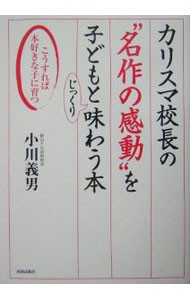 カリスマ校長の
“名作の感動”を
子どもと味わう本
じっくり
こうすれば
本好きな子に育つ
小川義男